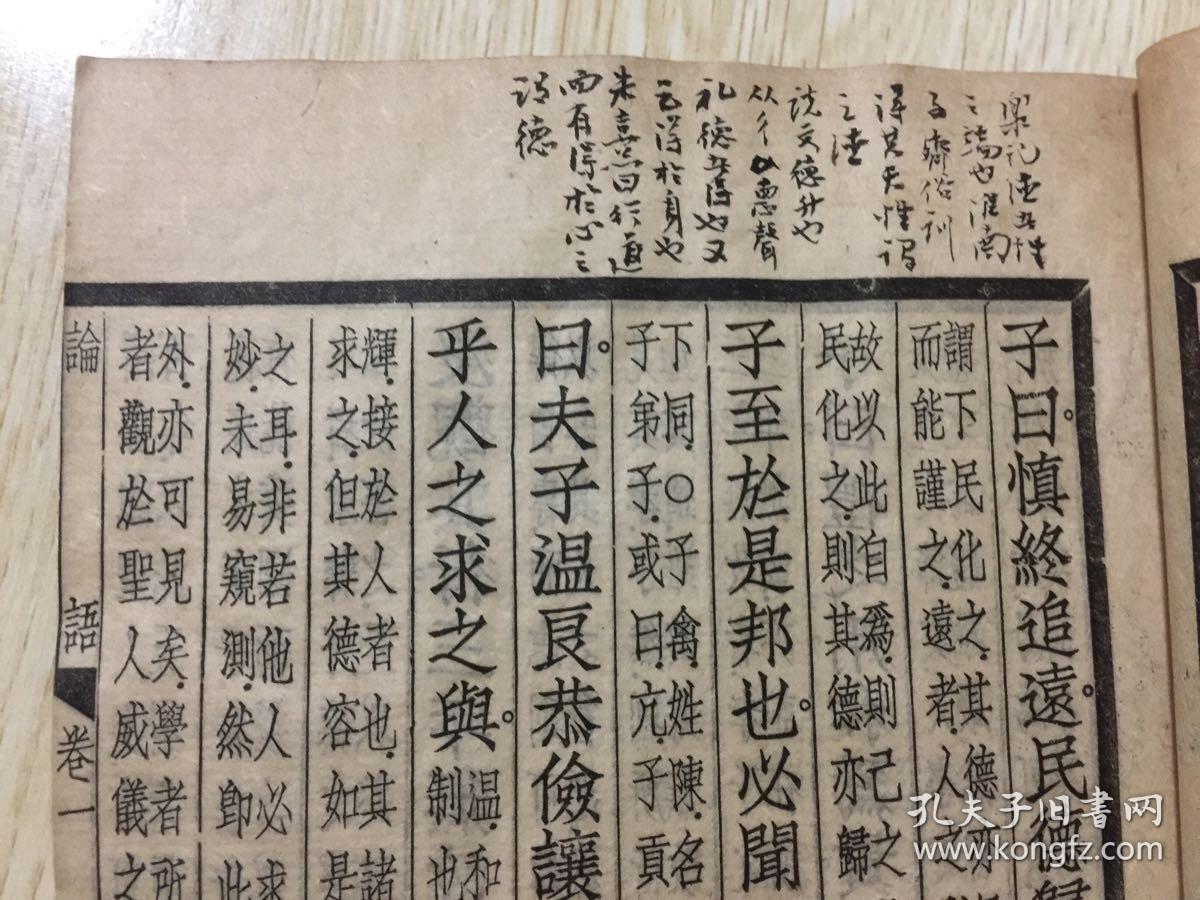 樂记德者性
之端也淮南
子齊俗训
得其天性谓
之德
说文德升也
从彳悳聲
礼德者得也又
云得於身也
朱熹曰行道
而有得於心之
谓德
子曰。慎終追遠。民德歸
謂下民化之。其德亦
而能謹之。遠者。人之
故以此自爲。則己之
民化之。則其德亦歸
子至於是邦也。必聞
下同。○子禽。姓陳。名
子弟子。或曰。亢。子貢
曰。夫子温良恭儉讓
乎人之求之與。
温。和
制也
輝。接於人者也。其諸
求之。但其德容如是
之耳。非若他人必求
妙。未易窺測。然即此
外。亦可見矣。學者所
者觀於聖人威儀之
論語
卷一
孔夫子旧書网
www.kongfz.com